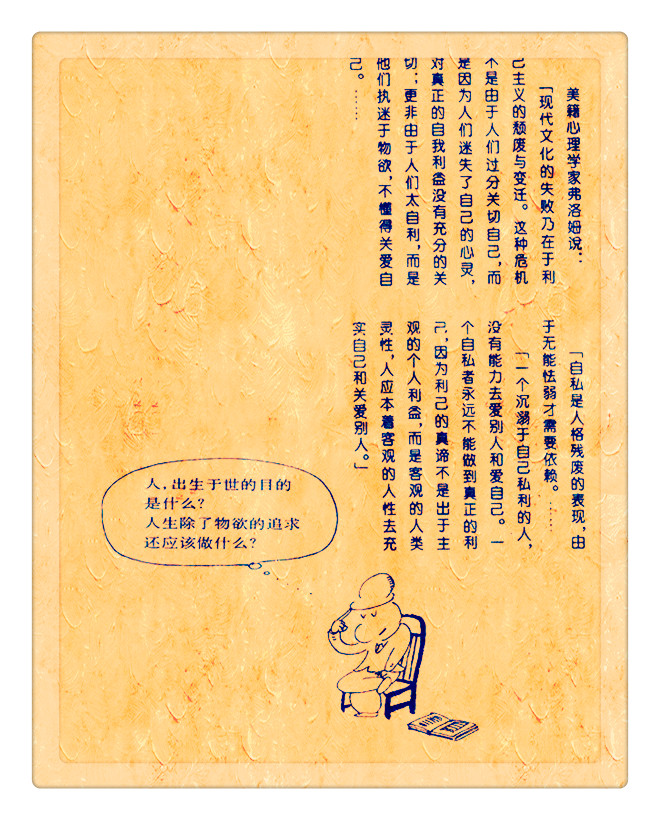 美籍心理学家弗洛姆说：
「现代文化的失败乃在于利
己主义的颓废与变迁。这种危机
不是由于人们过分关切自己，而
是因为人们迷失了自己的心灵，
对真正的自我利益没有充分的关
切；更非由于人们太自利，而是
他们执迷于物欲，不懂得关爱自
己。……
「自私是人格残废的表现，由
于无能怯弱才需要依赖。……
「一个沉溺于自己私利的人，
没有能力去爱别人和爱自己。一
个自私者永远不能做到真正的利
己，因为利己的真谛不是出于主
观的个人利益，而是客观的人类
灵性，人应本着客观的人性去充
实自己和关爱别人。」
人，出生于世的目的
是什么？
人生除了物欲的追求
还应该做什么？